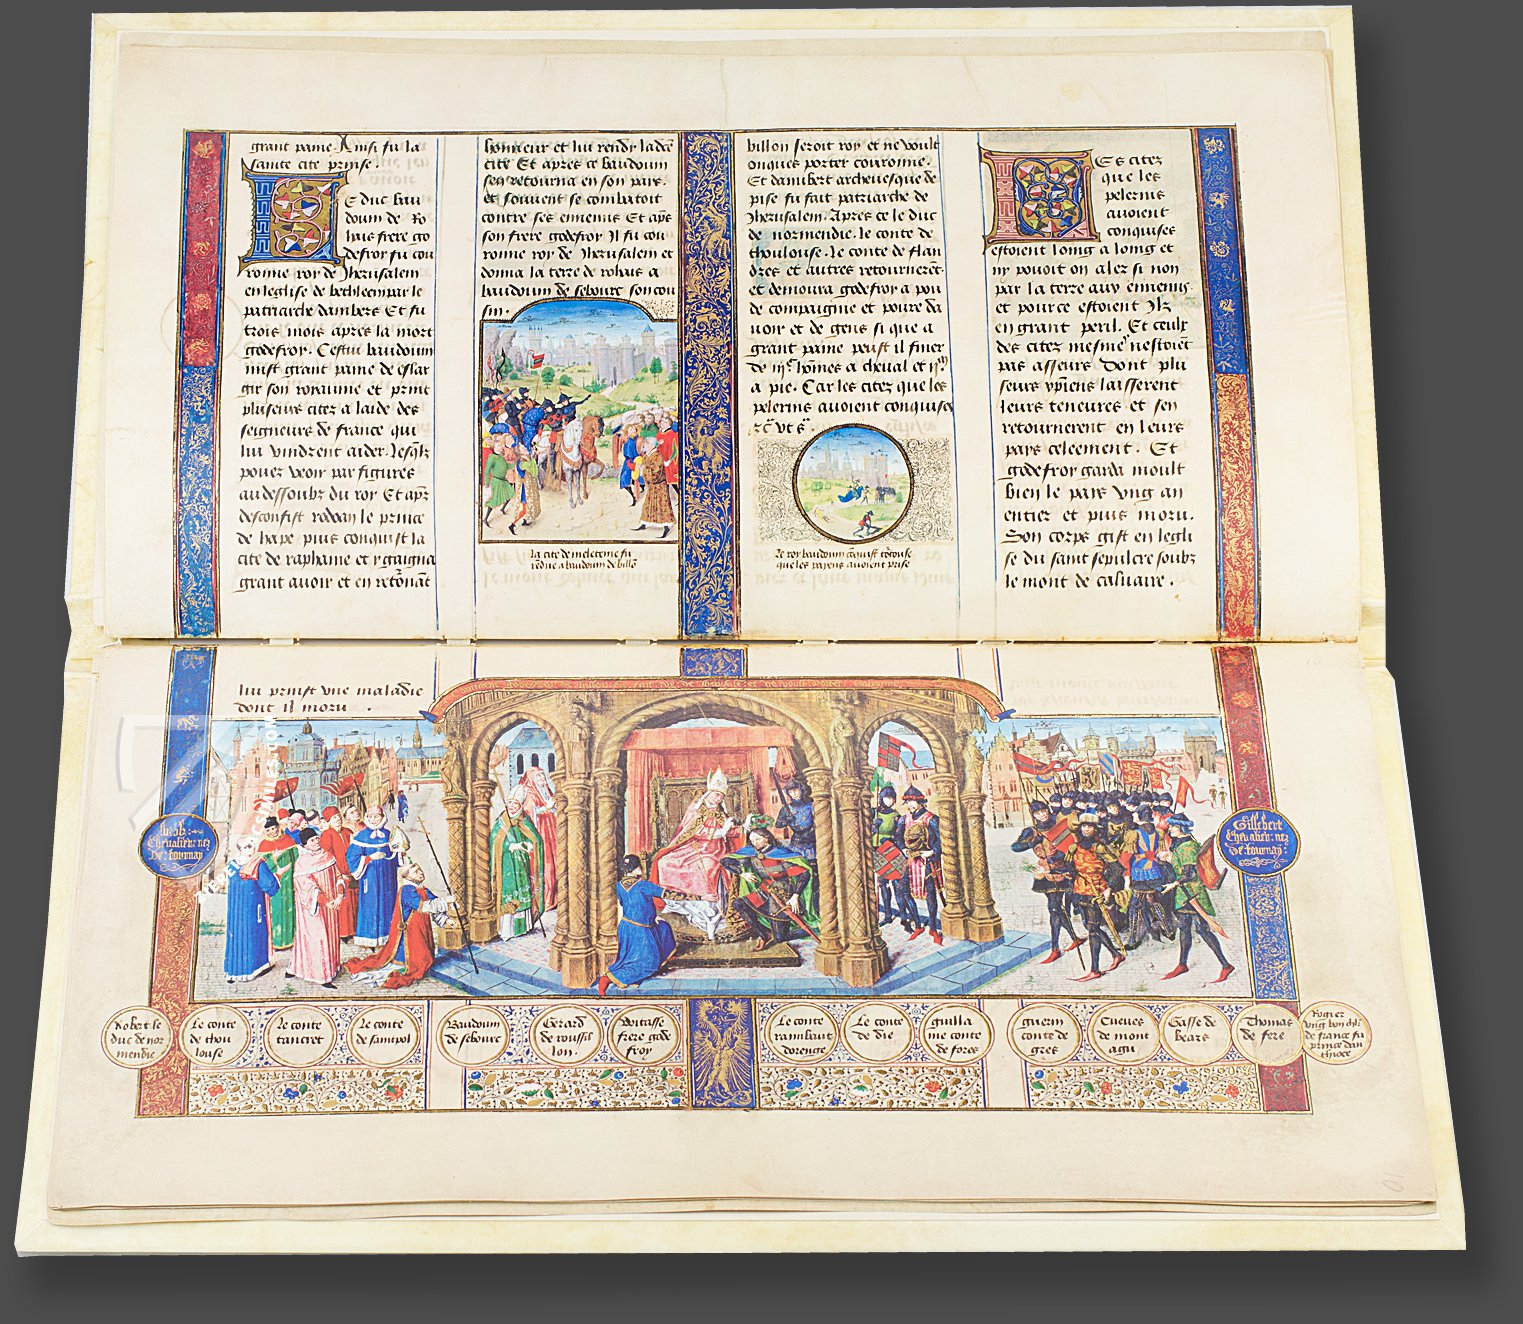 grant paine Ainsi fu la
sainte cite prinse.
Le duc bau
douin de Ro
hais frere go
defroy fu cou
ronne roy de Jherusalem
en leglise de bethleem par le
patriarche dambert Et fu
trois mois apres la mort
godefroy. Cestui baudouin
mist grant paine de eslar
gir son royaume et print
pluseurs citez a laide des
seigneurs de france qui
lui vindrent aider. Lesqlz
pouez veoir par figures
au dessoubz du roy Et aprs
desconfist rodoan le prince
de hape puis conquist la
cite de raphaine et y gaigna
grant avoir et en retornat
lui prinst une maladie
dont il moru .
honneur et lui rendy ladte
cite Et apres ce baudouin
sen retourna en son pays.
et souvent se combatoit
contre ses ennemis Et aps
son frere godefroy Il fu cou
ronne roy de Jherusalem et
donna la terre de rohais a
baudouin de sebourc son cou
sin.
la cite de meleteine fu
rendue a baudouin de billon
billon seroit roy et ne voult
onques porter couronne.
Et dambert archevesque de
pise fu fait patriarche de
Jherusalem. Apres ce le duc
de normendie. le conte de
thoulouse. le conte de flan
dres et autres retournerent
et demoura godefroy a pou
de compaignie et povre da
voir et de gens si que a
grant paine peust il finer
de iijc hommes a cheval et ijm
a pie. Car les citez que les
pelerins avoient conquises
Le roy baudouin conquist tortouse
que les payens avoient prise
Les citez
que les
pelerins
avoient
conquises
estoient loing a loing et
ny pouoit on aler si non
par la terre aux ennemis.
et pour ce estoient Ilz
en grant peril. Et ceulx
des citez mesme nestoiet
pas asseurs Dont plu
seurs xpiens laisserent
leurs teneures et sen
retournerent en leurs
pays celeement. Et
godefroy garda moult
bien le pays ung an
entier et puis moru.
Son corps gist en legli
se du saint sepulcre soubz
le mont de calvaire .
Chevalier: nez
De: tournay
Gillebert
Chevalier: nez
de: tournay:
Robert le
duc de nor
mendie
Le conte
de thou
louse
Le conte
tancret
Le conte
de saintpol
Baudouin
de sebourc
Gerard
de roussil
lon.
Witasse
frere gode
froy
Le conte
raimbaut
dorenge
Le conte
de die
guilla
me conte
de fores
guerin
conte de
gres
Cueves
de mont
agu
Gasse de
bears
Thomas
de fere
Rogier
ung bon chlr
de france fu
prince dan
thioce